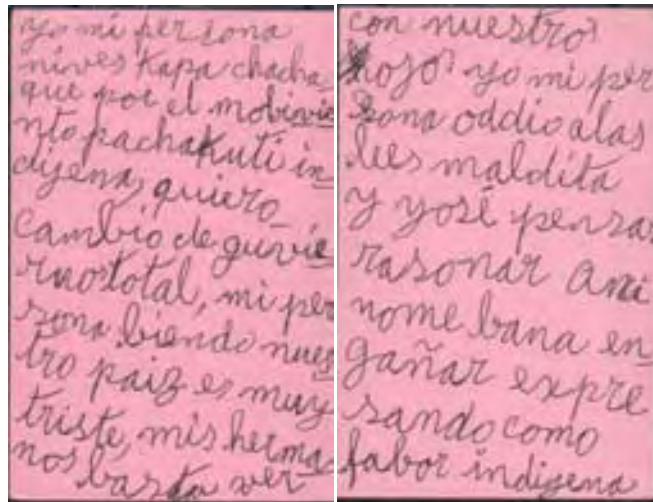 yo mi persona
nives Kapa chacha,
que por el mobivie
nto pachakuti in
dijena, quiero
cambio de guvie
rnototal, mi per
sona biendo nues
tro paiz es muy
triste, mis herma
nos basta ver
con nuestros
hojos yo mi per
sona oddio a las
lees maldita
y yo sé pensar
rasonar a mi
nome bana en
gañar expre
sando como
fabor indigena